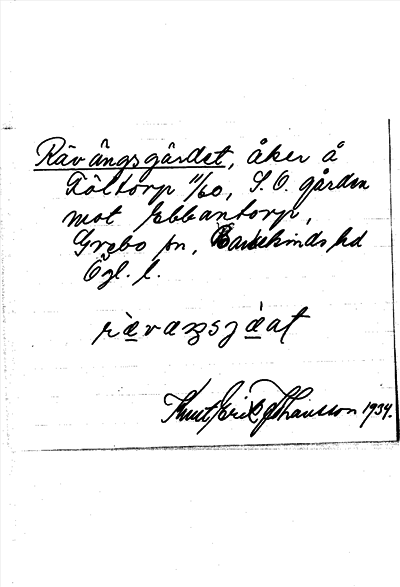 Rävängsgärdet, åker å
Föltorp 11/60, S.O. gården
mot Ebbantorp,
Grebo sn, Bankekinds hd
Ögl. l.
Knut Erik Johansson 1934.